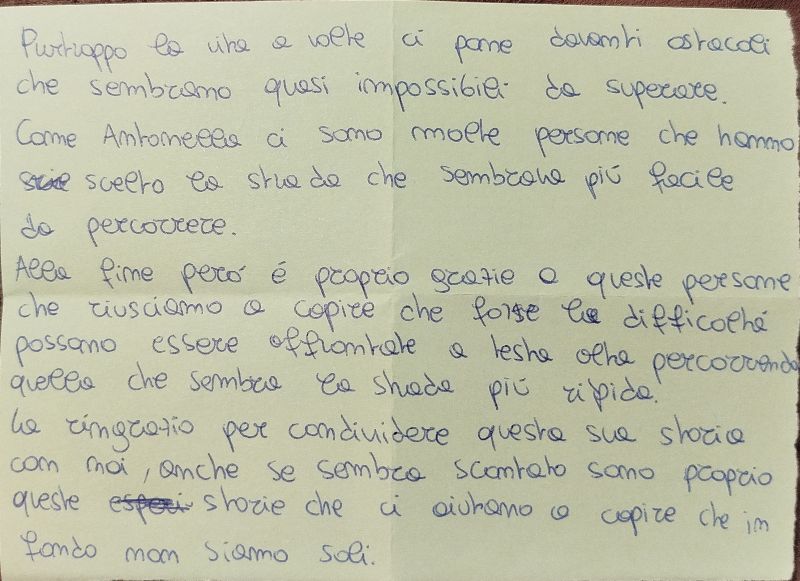 Purtroppo la vita a volte ci pone davanti ostacoli
che sembrano quasi impossibili da superare.
Come Antonella ci sono molte persone che hanno
scelto la strada che sembrava più facile
da percorrere.
Alla fine però é proprio grazie a queste persone
che riusciamo a capire che forse le difficoltá
possano essere affrontate a testa alta percorrendo
quella che sembra la strada piú ripida.
La ringrazio per condividere questa sua storia
con noi, anche se sembra scontato sono proprio
queste storie che ci aiutano a capire che in
fondo non siamo soli.